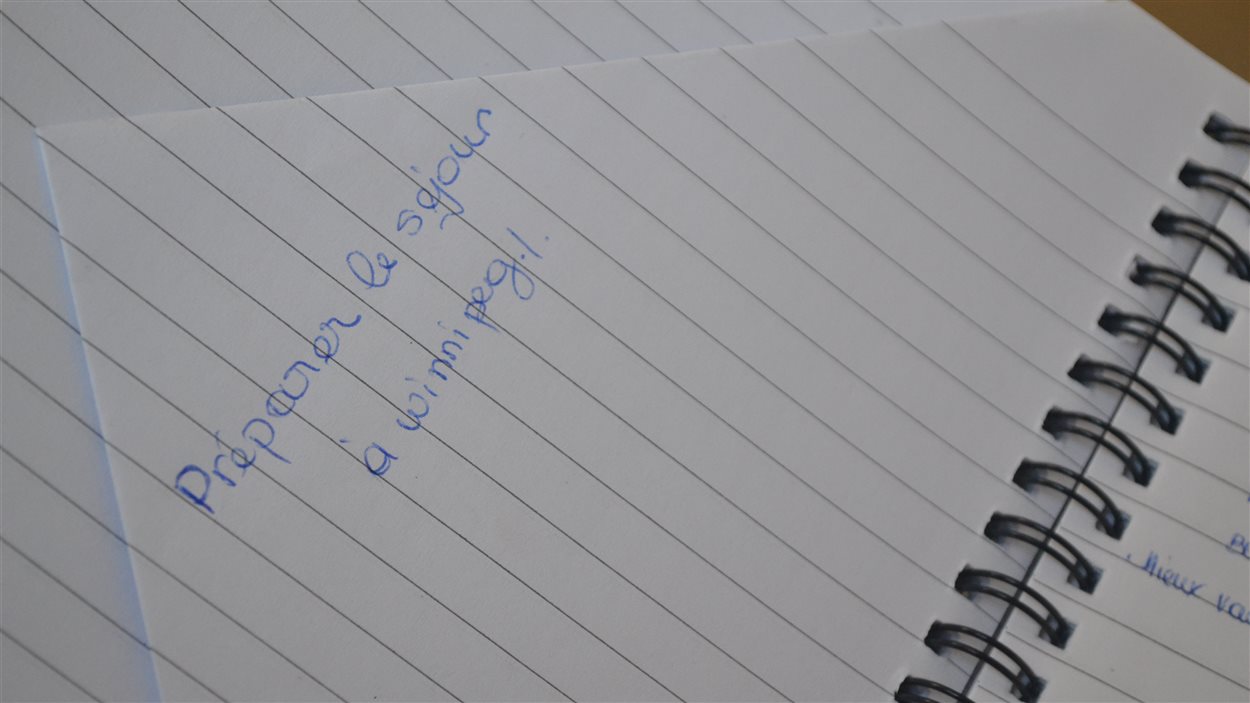 Préparer le séjour
à winnipeg./.
. Mieux